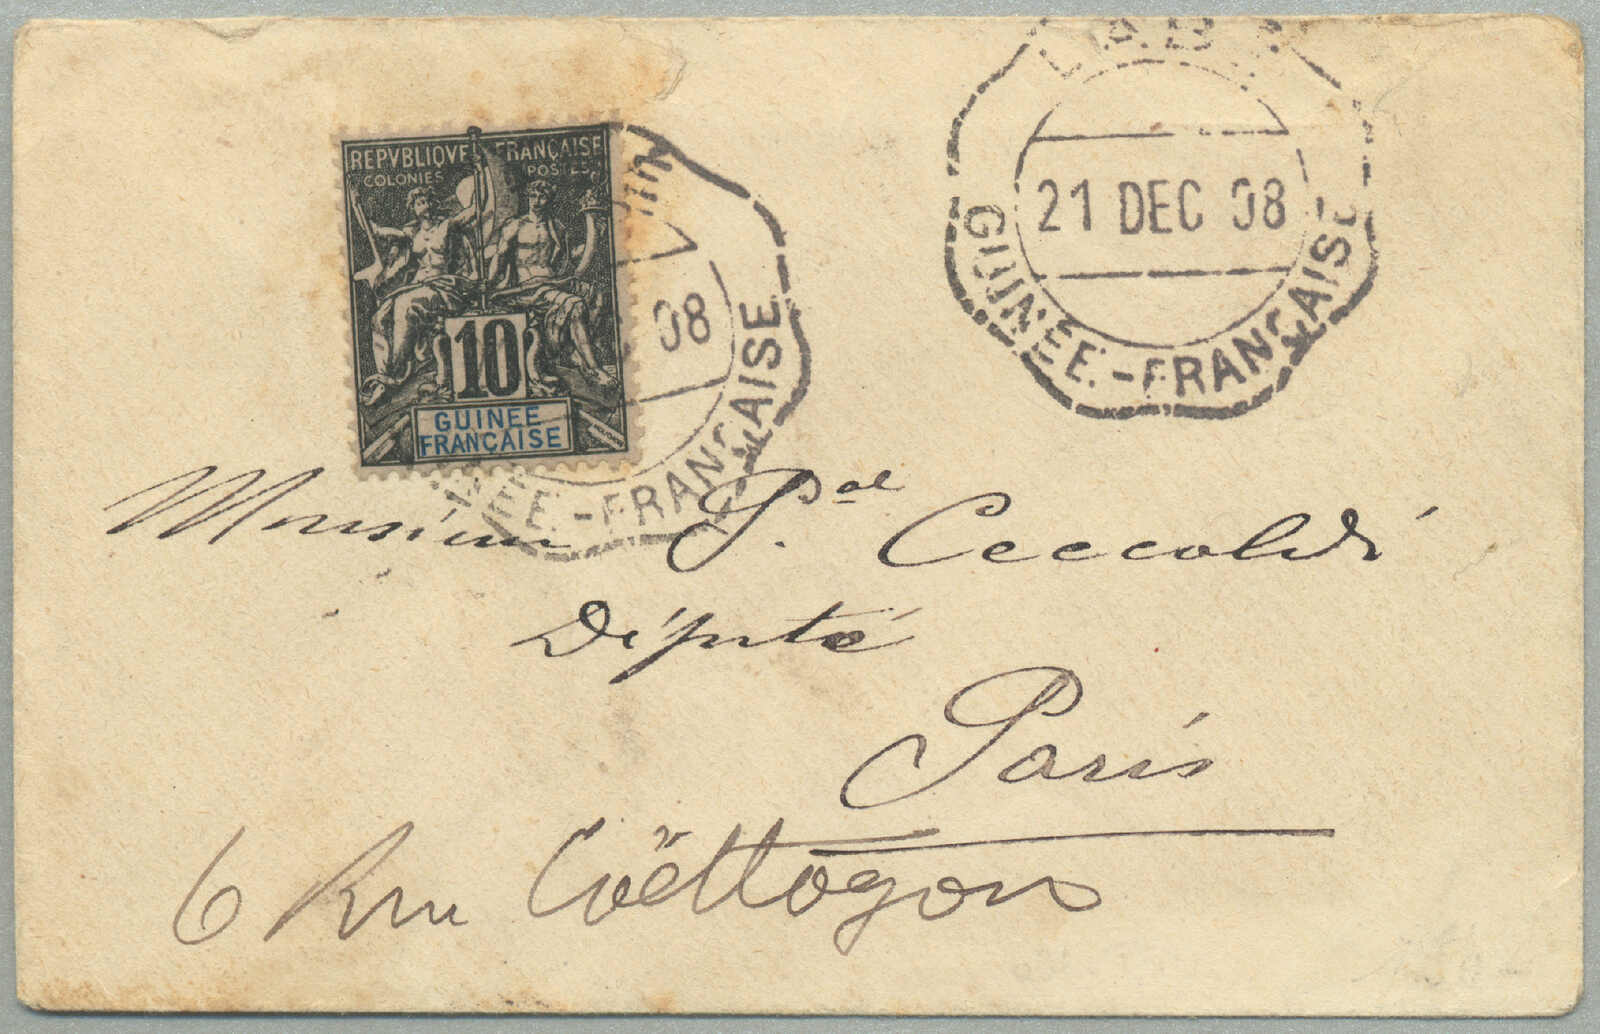 REPVBLIQVE FRANÇAISE
COLONIES POSTES
10
GUINEE
FRANÇAISE
08
E.-FRANÇAISE
21 DEC 08
GUINÉE.-FRANÇAISE
Monsieur P. Ceccaldi
Député
Paris
6 Rue Coëtlogon